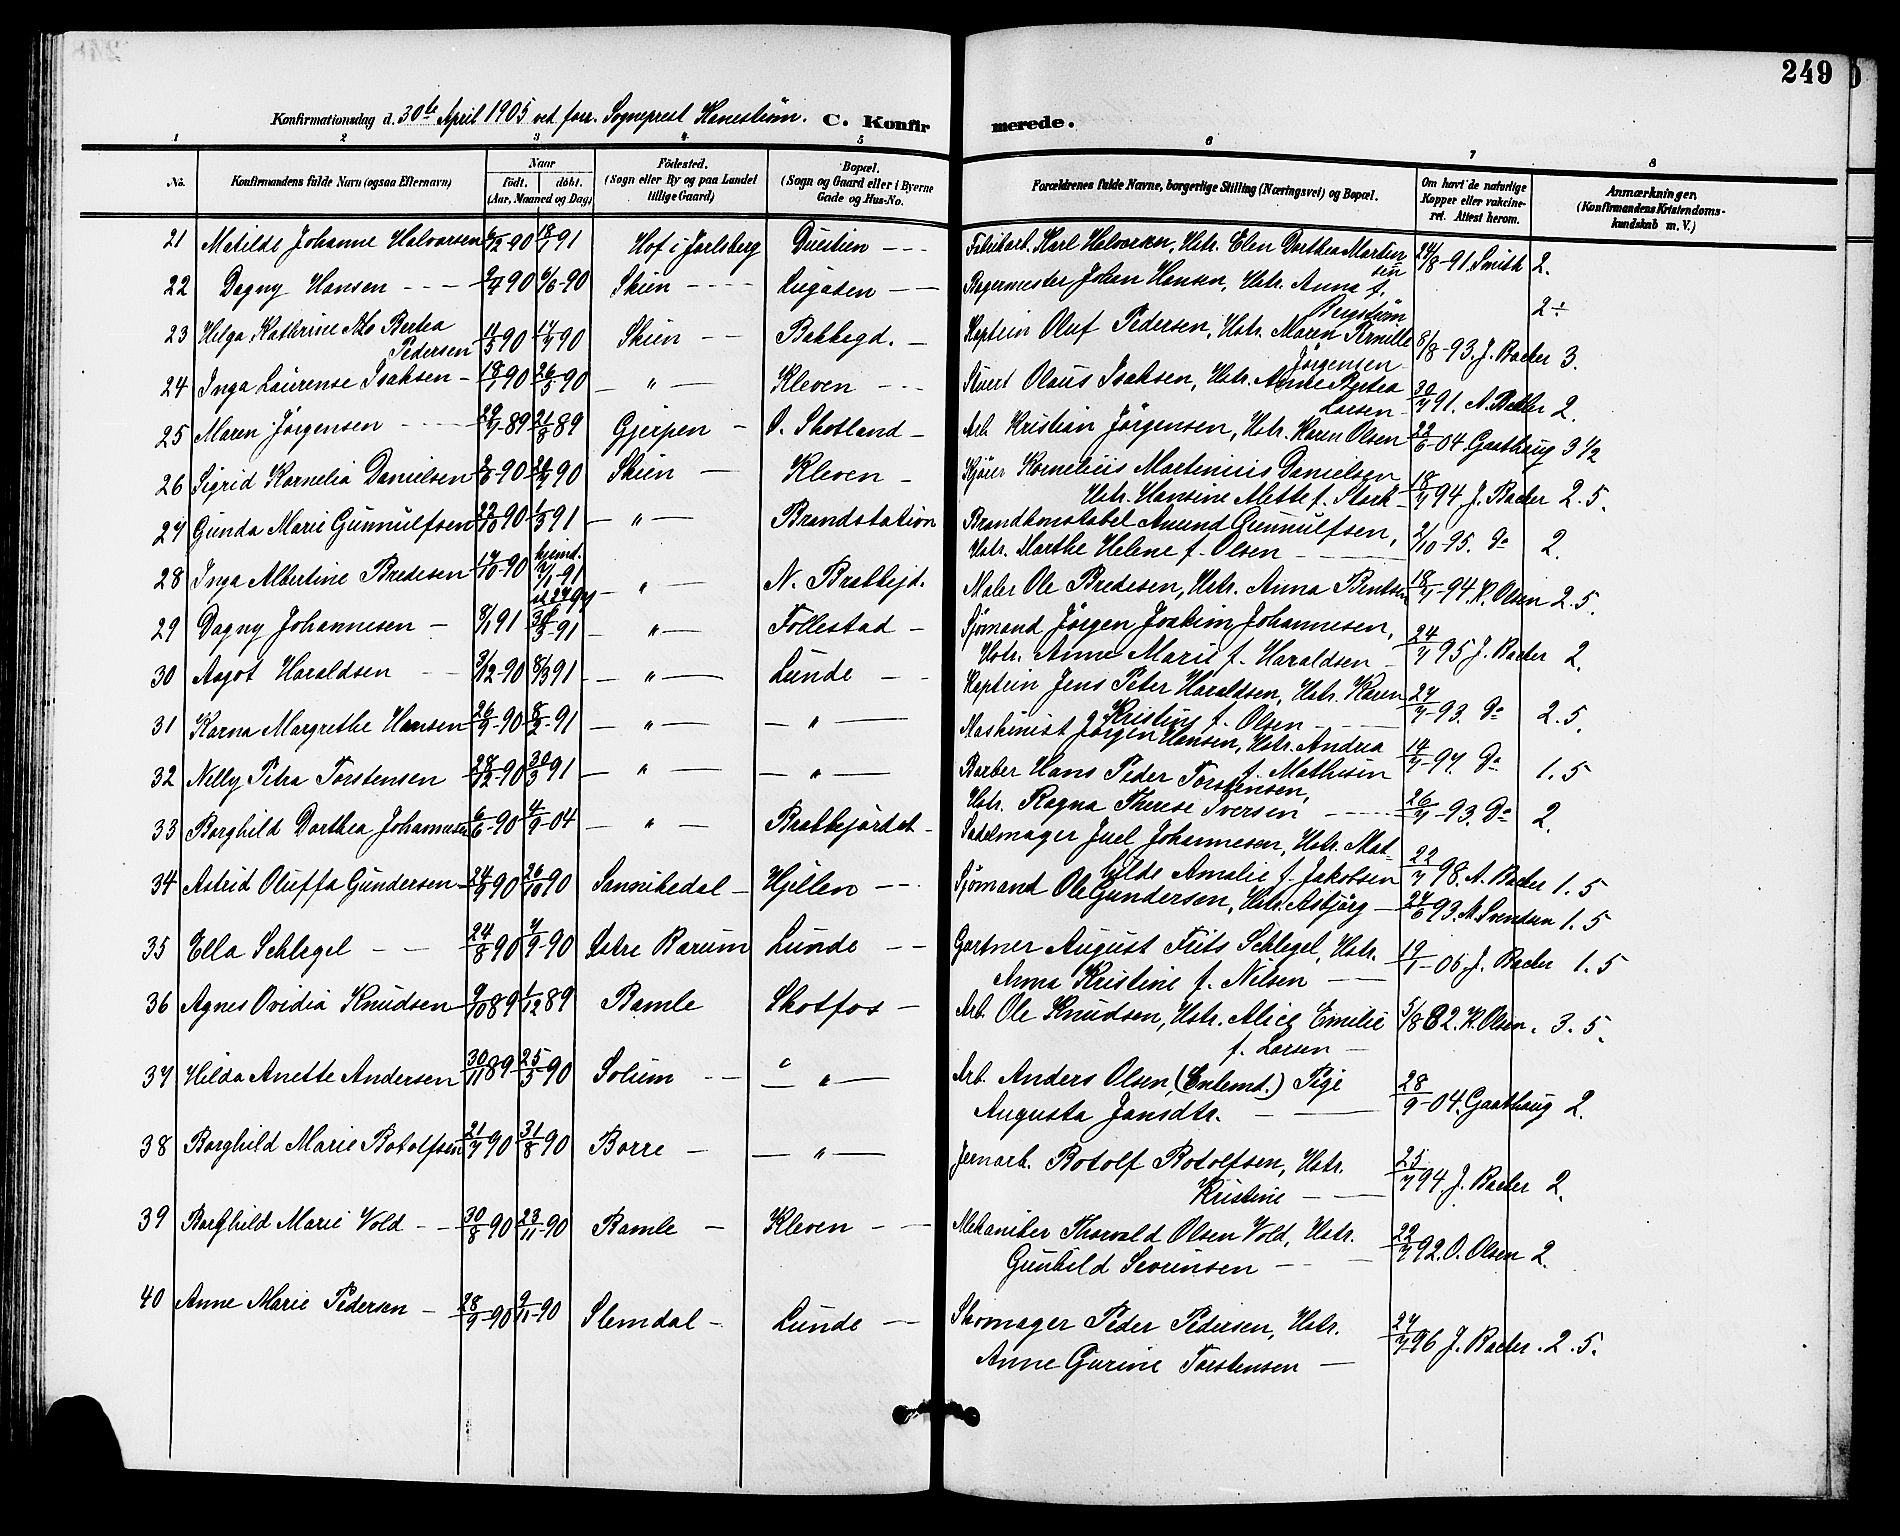 249
Konfirmationsdag d. 30te April 1905 ved forr. Sogneprest Hanestrøm. C. Konfirmerede.
1 2 3 4 5 6 7 8
No. Konfirmandens fulde Navn (ogsaa Efternavn) Naar født. døbt. (Aar, Maaned og Dag) Fødested. (Sogn eller By og paa Landet tillige Gaard) Bopæl. (Sogn og Gaard eller i Byerne Gade og Hus-No. Forældrenes fulde Navne, borgerlige Stilling (Næringsvei) og Bopæl. Om havt de naturlige Kopper eller vakcineret. Attest herom. Anmærkninger. (Konfirmandens Kristendomskundskab m. V.)
21 Matilde Johanne Halvorsen 6/12 90 18/1 91 Hof i Jarlsberg Duestien Fabrikarb. Karl Halvorsen, Hstr. Elen Dorthea Martinsen 24/8-91. Smith 2.
22 Dagny Hansen 2/4 90 6/6-90 Skien Lugaden Bagermester Johan Hansen, Hstr. Anna f. Bergstrøm 2÷
23 Helga Kathrine Bertea Pedersen 11/5 90 17/7 90 Skien Bakkegd. Kaptein Oluf Pedersen, Hstr. Maren Pernille Jørgensen 8/8-93. J. Backer 3.
24 Inga Laurense Isaksen 18/1 90 26/5-90 " Kleven Stuert Olaus Isaksen, Hstr. Anne Bertea Larsen 30/7 91. A. Backer 2.
25 Maren Jørgensen 29/7-89 21/8 89 Gjerpen O. Skotland Arb. Kristian Jørgensen, Hstr. Karen Olsen 22/6-04. Gaathaug 3 1/2
26 Sigrid Kornelia Danielsen Skien Kleven Kjører Kornelius Martinius Danielsen Hstr. Hansine Mette f. Stark 18/7 94 J. Backer 2.5.
27 Gunda Marie Gunnulfsen 22/10 90 1/3 91 " Brandstation Brandkonstabel Amund Gunnulfsen, Hstr. Marthe Helene f. Olsen 2/10-95. do 2.
28 Inga Albertine Bredesen 17/10-90 hjemd. " N. Brækkejd. Maler Ole Bredesen, Hstr. Anna Bentsen 18/7-94. K. Olsen 2.5.
29 Dagny Johannesen 3/1 91 " Follestad Sjømand Jørgen Joakim Johannesen, Hstr. Anne Marie f. Haraldsen 24/7 95 J. Backer 2.
30 Aagot Haraldsen 3/12-90 8/3 91 " Lunde Kaptein Jens Peter Haraldsen, Hstr. Karen Kristine f. Olsen 27/7-93. do 2.5.
31 Karna Margrethe Hansen 26/9-90 8/2-91 " " Maskinist Jørgen Hansen, Hstr. Andrea f. Mathisen 14/7-97. do 1.5
32 Nelly Petra Torstensen 28/12-90 30/3 91 " " Barber Hans Peder Torstensen, Hstr. Ragna Therese Iversen 26/7-93. do 2.
33 Borghild Dorthea Johannesen 6/6-90 4/9-04 " Brækkejordet Sadelmager Juel Johannesen, Hstr. Matilde Amalie f. Jakobsen 22/7 98. A. Backer 1.5
34 Astrid Oluffa Gundersen 24/9 90 26/10 90 Sannikedal Hjellen Sjømand Ole Gundersen, Hstr. Asbjørg 27/6 93. M. Svendsen 1.5
35 Ella Schlegel 24/8 90 7/9-90 Østre Bærum Lunde Gartner August Frits Schlegel, Hstr. Anna Kristine f. Nilsen 19/1-05. J. Backer 1.5
36 Agnes Ovidia Knudsen 9/10 89 1/12 89 Bamle Skotfos Arb. Ole Knudsen, Hstr. Alice Emilie f. Larsen 5/8 82. K. Olsen. 3.5.
37 Hilda Anette Andersen 30/11 89 25/5-90 Solum " Arb. Anders Olsen, (Enkemd.) Pige Augusta Jansdtr. 28/9-04. Gaathaug 2.
38 Borghild Marie Botolfsen 21/7 90 31/8 90 Borre " Jernarb. Botolf Botolfsen, Hstr. Kristine 25/7 94 J. Backer 2.
39 Borghild Marie Vold 30/8 90 23/11-90 Bamle Kleven Mekaniker Thorvald Olsen Vold, Hstr. Gunhild Sevrinsen 22/7 92. O. Olsen 2.
40 Anne Marie Pedersen 28/9-90 9/11-90 Slemdal Lunde Skomager Peder Pedersen, Hstr. Anne Gurine Torstensen 27/7 96 J. Backer. 2.5.